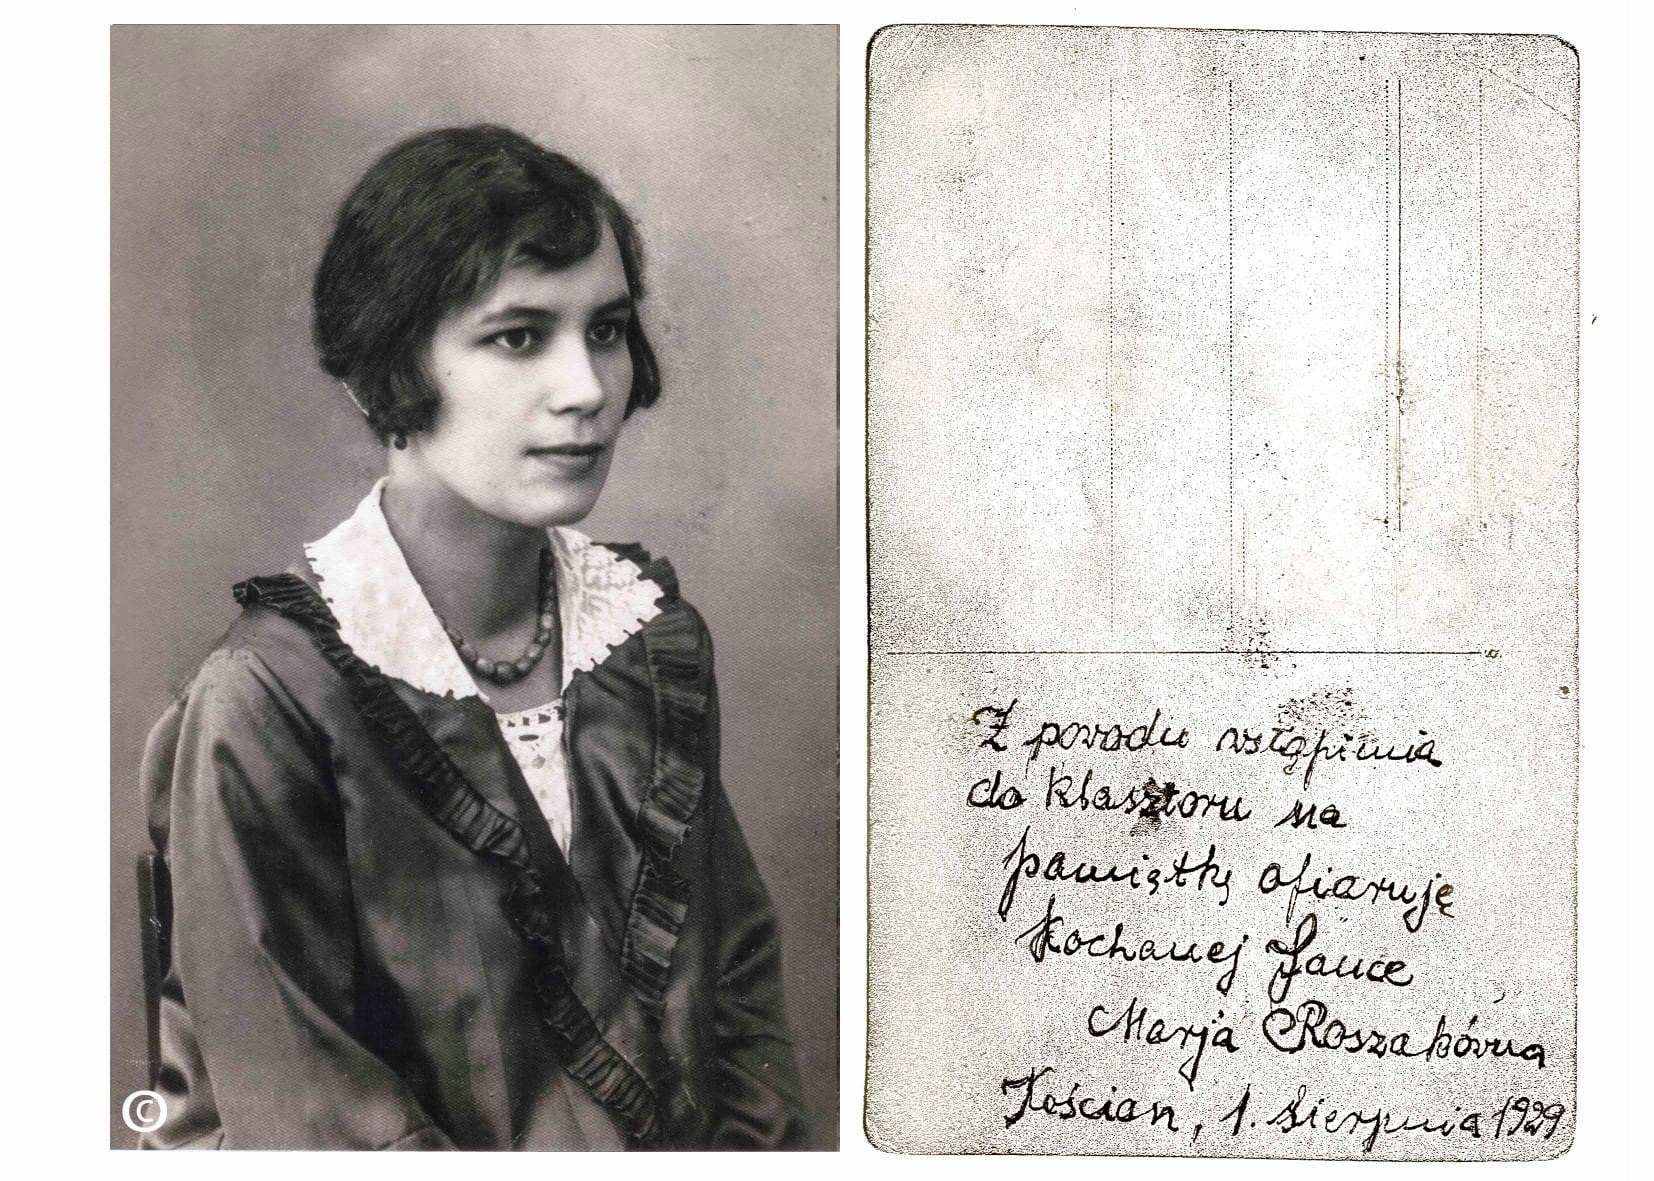 ©
Z powodu wstąpienia
do klasztoru na
pamiątkę ofiaruję
Kochanej Jance
Marja Roszakówna
Kościan, 1. Sierpnia 1929